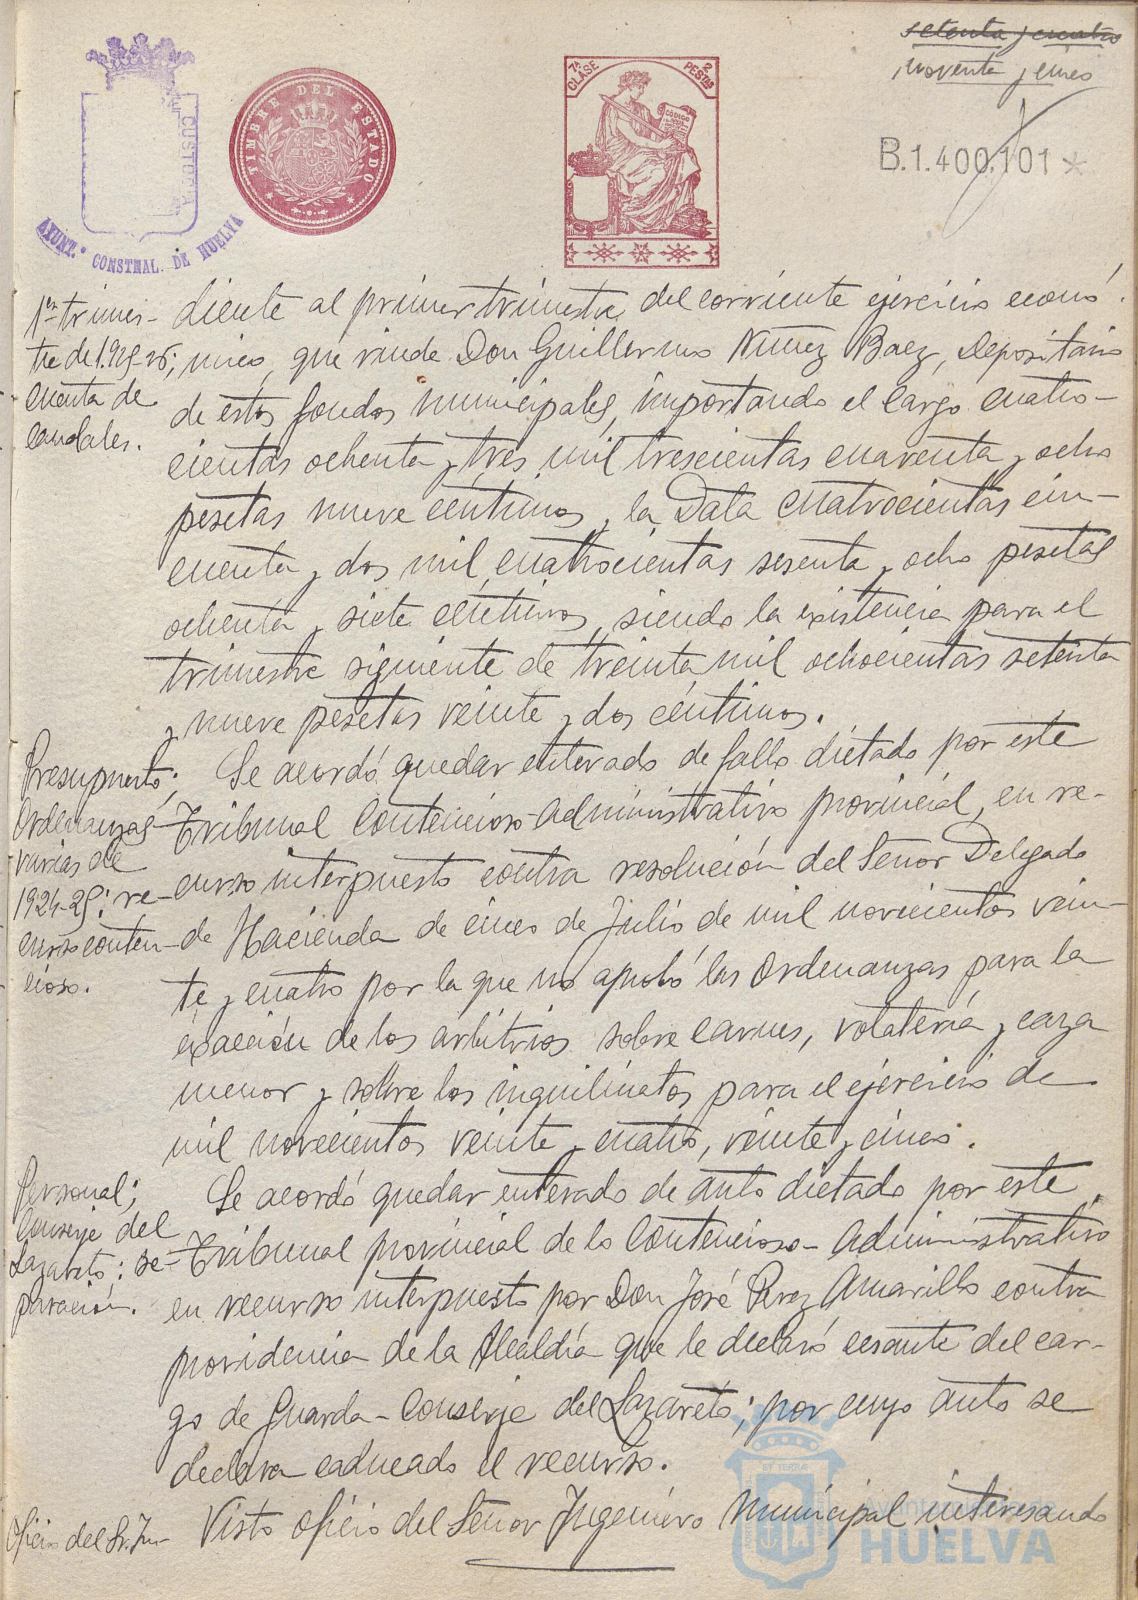 setenta y cuatro
noventa y cinco
CUSTODIA
AYUNT.º CONSTNAL. DE HUELVA
TIMBRE DEL ESTADO
7ª CLASE
2 PESTAS
CÓDIGO
B.1.400.101*
1er trimes-
tre de 1.925-26;
cuenta de
caudales.
diente al primer trimestre del corriente ejercicio econó-
mico, que rinde Don Guillermo Núñez Baez, Depositario
de estos fondos municipales, importando el Cargo cuatro-
cientas ochenta y tres mil trescientas cuarenta y ocho
pesetas nueve céntimos y la Data cuatrocientas cin-
cuenta y dos mil cuatrocientas sesenta y ocho pesetas
ochenta y siete céntimos, siendo la existencia para el
trimestre siguiente de treinta mil ochocientas setenta
y nueve pesetas veinte y dos céntimos.
Presupuesto;
Ordenanzas
varias de
1924-25: re-
curso conten-
cioso.
Se acordó quedar enterado de fallo dictado por este
Tribunal Contencioso-administrativo provincial, en re-
curso interpuesto contra resolución del Señor Delegado
de Hacienda de cinco de Julio de mil novecientos vein-
te y cuatro por la que no aprobó las Ordenanzas para la
exacción de los arbitrios sobre carnes, volatería y caza
menor y sobre los inquilinatos para el ejercicio de
mil novecientos veinte y cuatro, veinte y cinco.
Personal;
Conserje del
Lazareto: se-
paración.
Se acordó quedar enterado de auto dictado por este
Tribunal provincial de lo Contencioso-Administrativo
en recurso interpuesto por Don José Perez Amarillo contra
providencia de la Alcaldía que le declaró cesante del car-
go de Guarda-Conserje del Lazareto; por cuyo auto se
declara caducado el recurso.
Oficio del Sr. In-
Visto oficio del Señor Ingeniero Municipal interesando
Ayuntamiento de
HUELVA